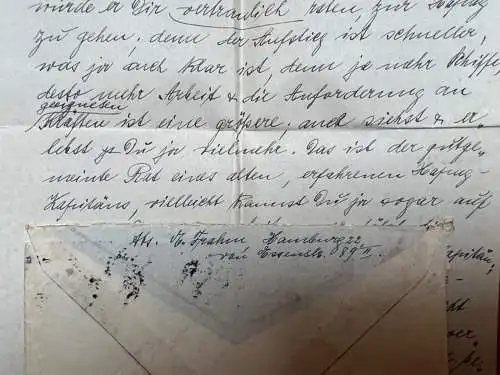 würde er Dir vertraulich raten, zur Hapag
zu gehen; denn der Aufstieg ist schneller,
was ja auch klar ist, denn je mehr Schiffe
desto mehr Arbeit & die Anforderung an
geeigneten
Kräften ist eine größere; auch siehst & er-
lebst Du ja vielmehr. Das ist der gutge-
meinte Rat eines alten, erfahrenen Hapag-
Kapitäns, vielleicht kannst Du ja sogar auf
Abs. E. Frahm Hamburg 22
von Essenstr. 89 II.
Kapitän,